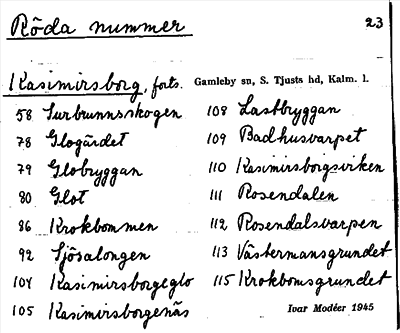 Röda nummer 23
Kasimirsborg, forts. Gamleby sn, S. Tjusts hd, Kalm. l.
58 Surbrunnsskogen
78 Glogärdet
79 Globryggan
80 Glot
86 Krokbommen
92 Sjösalongen
104 Kasimirsborgsglo
105 Kasimirsborgsnäs
108 Lastbryggan
109 Badhusvarpet
110 Kasimirsborgsviken
111 Rosendalen
112 Rosendalsvarpen
113 Västermansgrundet
115 Krokbomsgrundet
Ivar Modéer 1945